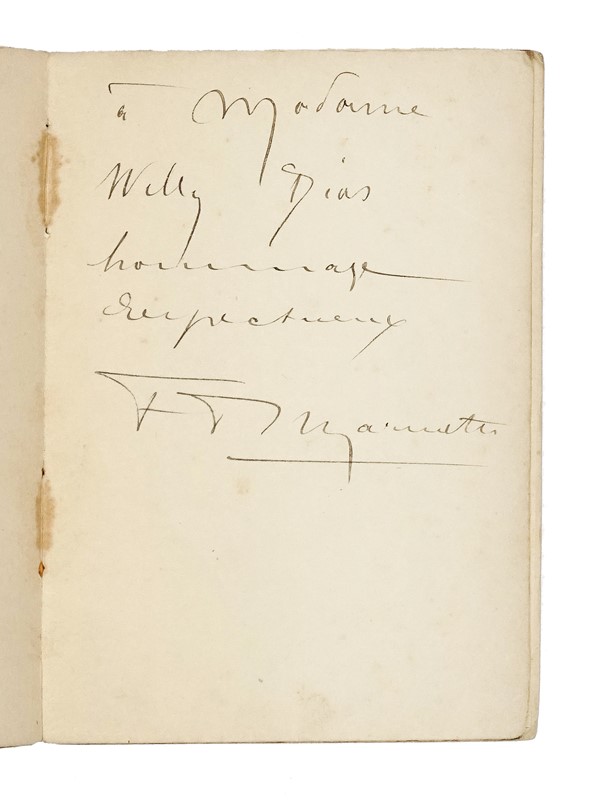 à Madame
Willy Dias
hommage
respectueux
F T Marinetti